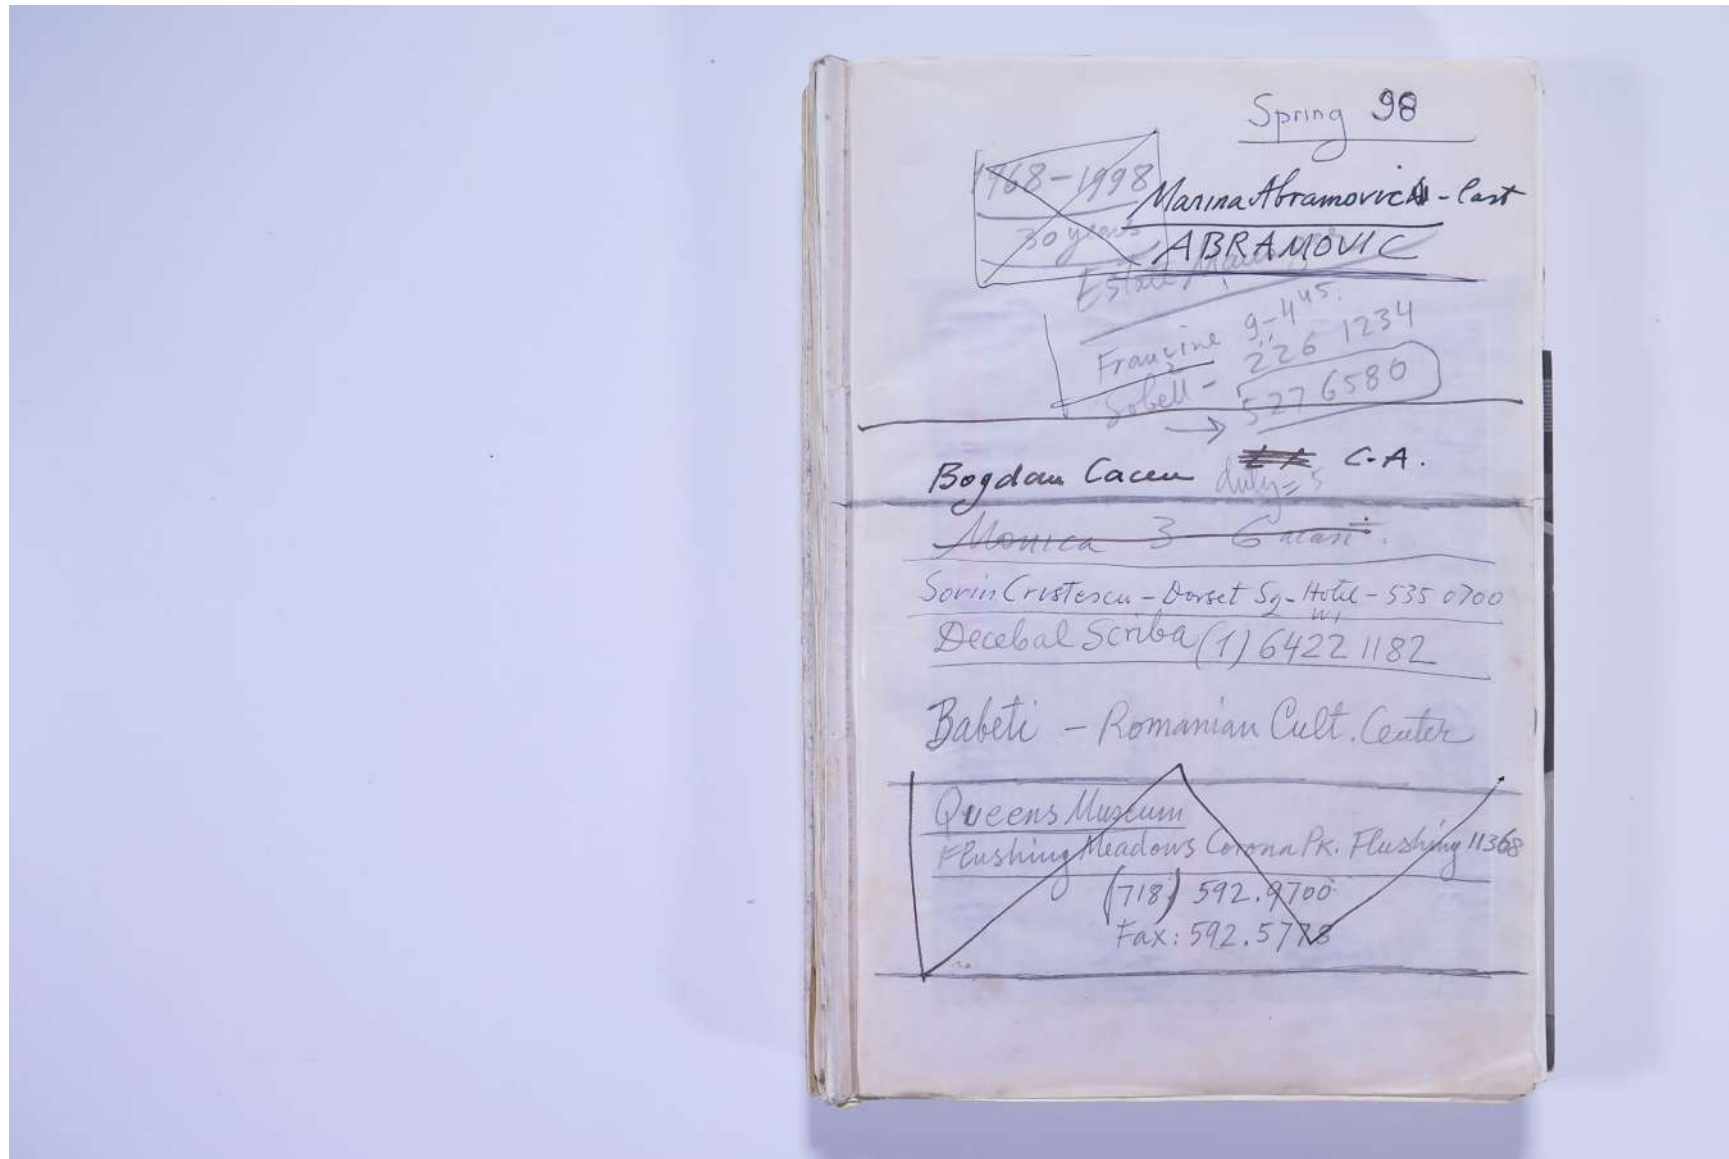 Spring 98
1968-1998
30 years
Marina Abramovic - last
ABRAMOVIC
Estate Manager
Francine 9-4 45.
Sobell - 226 1234
→ 527 6580
Bogdan Caceu C-A.
duty = 5
Monica 3 - 6
Sorin Cristescu - Dorset Sq - Hotel - 535 0700
W1
Decebal Scriba (1) 6422 1182
Babeti - Romanian Cult. Center
Queens Museum
Flushing Meadows Corona Pk. Flushing 11368
(718) 592.9700
Fax: 592.5778